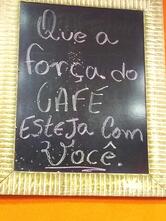 Que a
força do
CAFÉ
ESTEJA Com
Você.